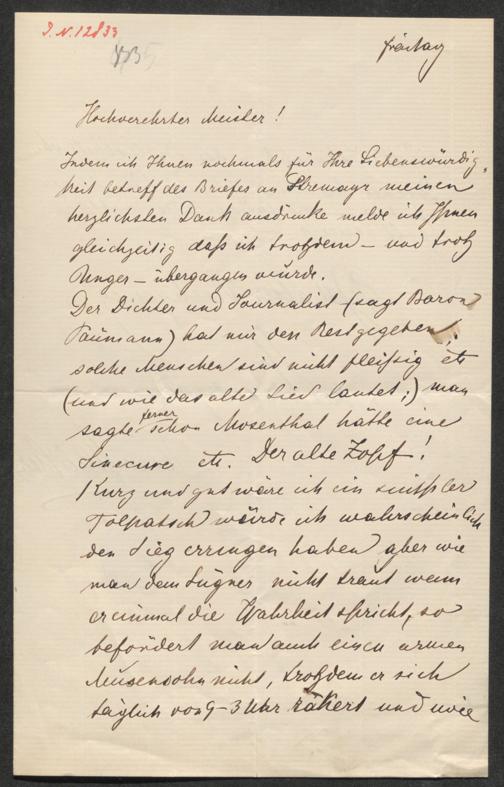 J. N. 12833
Freitag
Hochverehrter Meister!
Indem ich Ihnen nochmals für Ihre Liebenswürdig-
keit betreff des Briefes an Stremayr meinen
herzlichsten Dank ausdrücke melde ich Ihnen
gleichzeitig daß ich trotzdem – und trotz
Unger – übergangen wurde.
Der Dichter und Journalist (sagt Baron
Päumann) hat mir den Rest gegeben,
solche Menschen sind nicht fleißig etc
(und wie das alte Lied lautet;) man
sagte ferner schon Mosenthal hätte eine
Sinecure etc. Der alte Zopf!
Kurz und gut wäre ich ein
Tolpatsch würde ich wahrscheinlich
den Sieg errungen haben aber wie
man dem Lügner nicht traut wenn
er einmal die Wahrheit spricht, so
befördert man auch einen armen
Musensohn nicht, trotzdem er sich
täglich von 9–3 Uhr rackert und wie